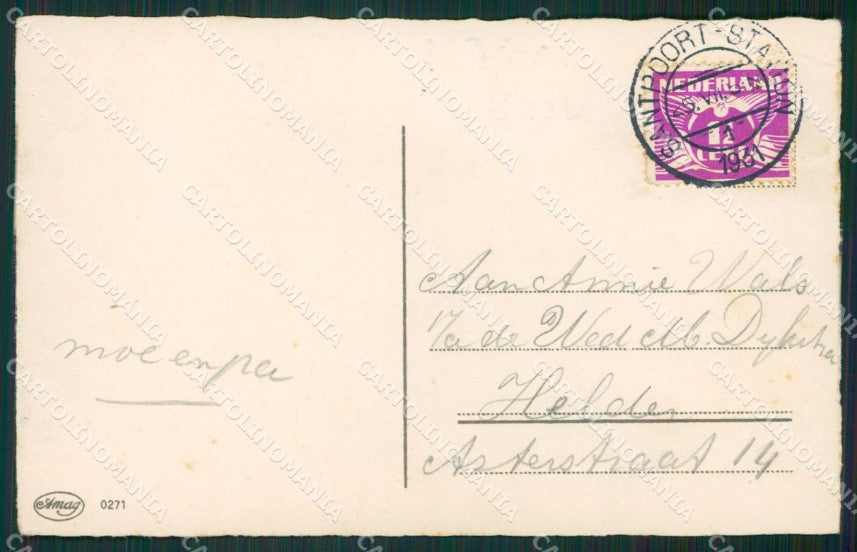 SANTPOORT-STATION
1931
NEDERLAND
1½
CENT
Aan Annie Wals
p/a de Wed M. Dykstra
Helder
Asterstraat 14
moe en pa
Amag 0271
CARTOLINOMANIA